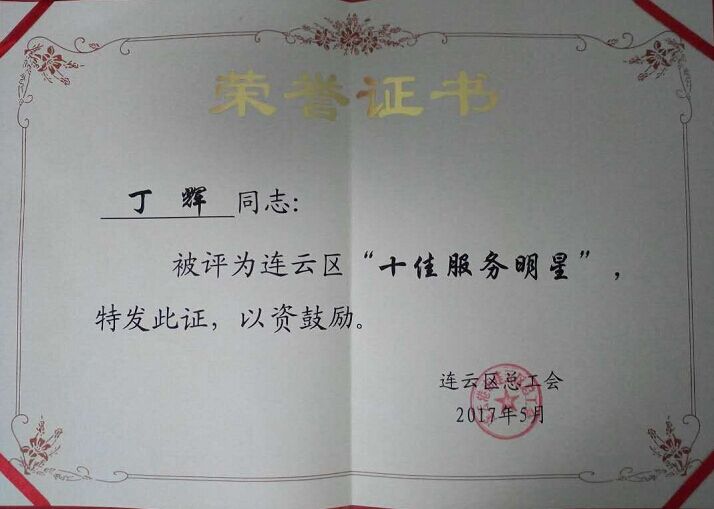 荣誉证书
丁辉同志：
被评为连云区“十佳服务明星”，
特发此证，以资鼓励。
连云区总工会
2017年5月